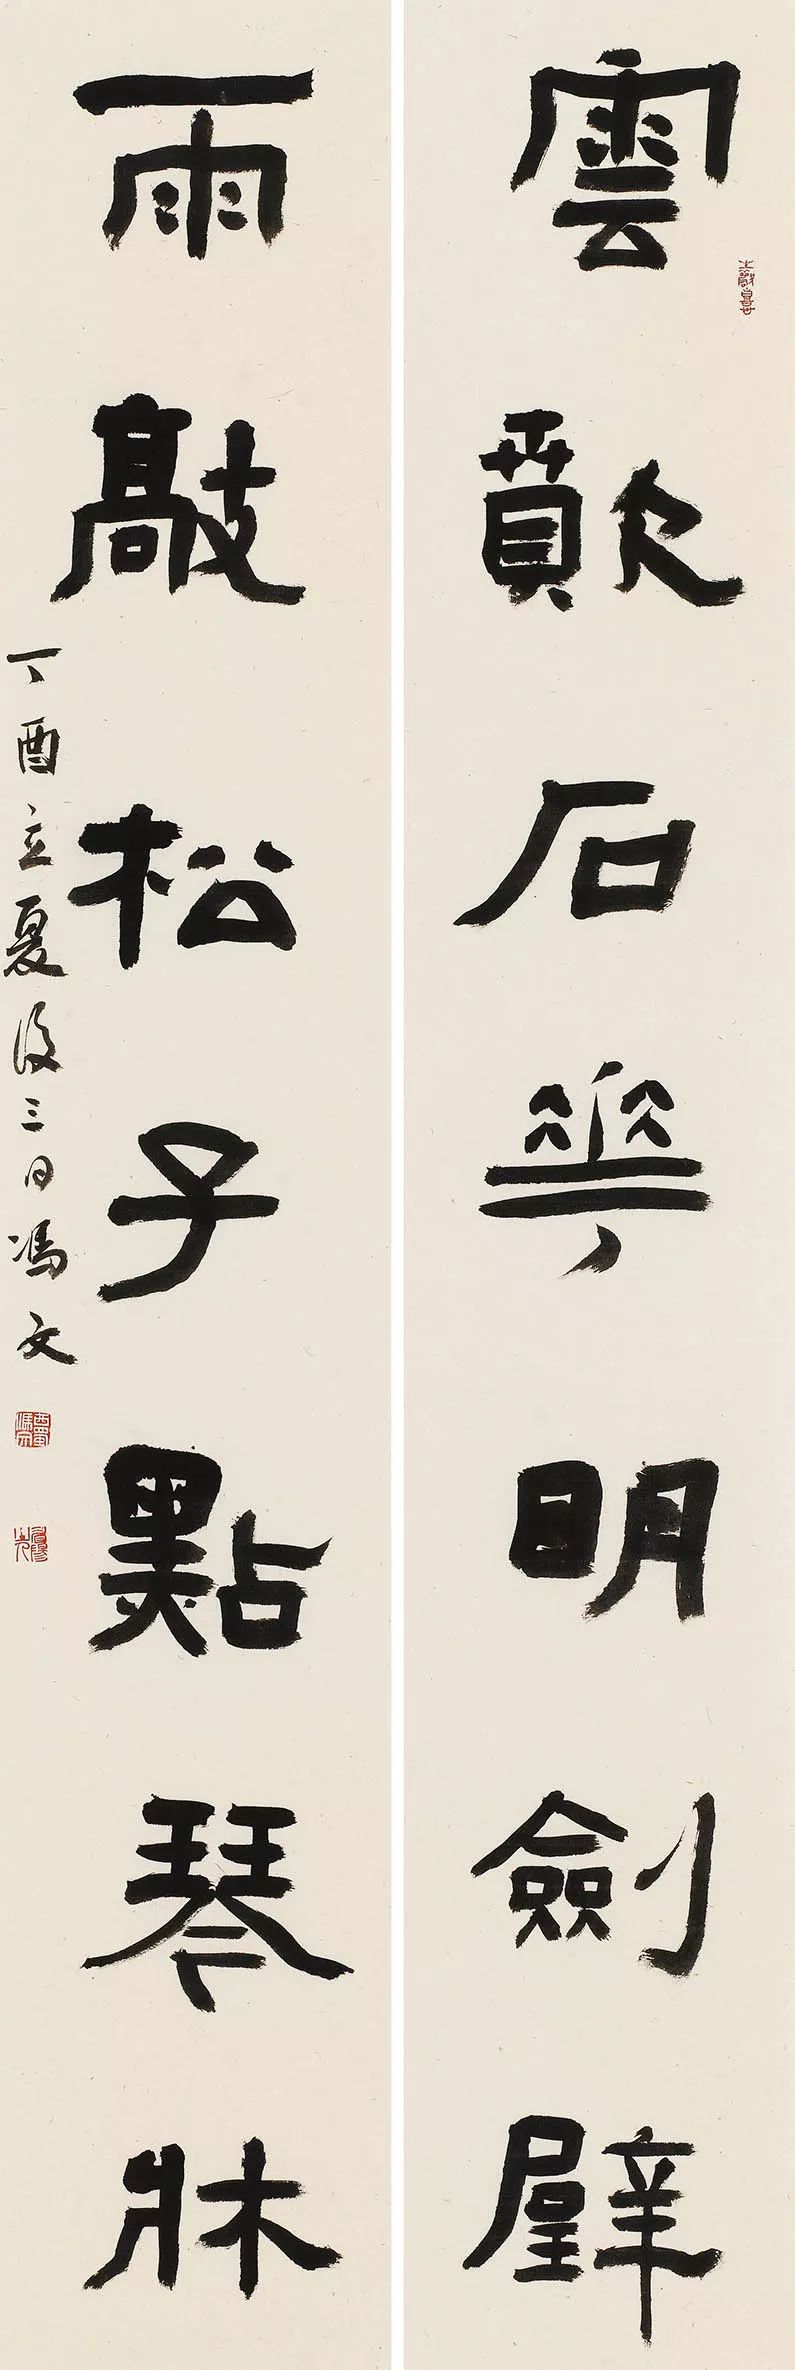 雲歕石華明劍壁
雨敲松子點琴牀
丁酉立夏後三日馮文